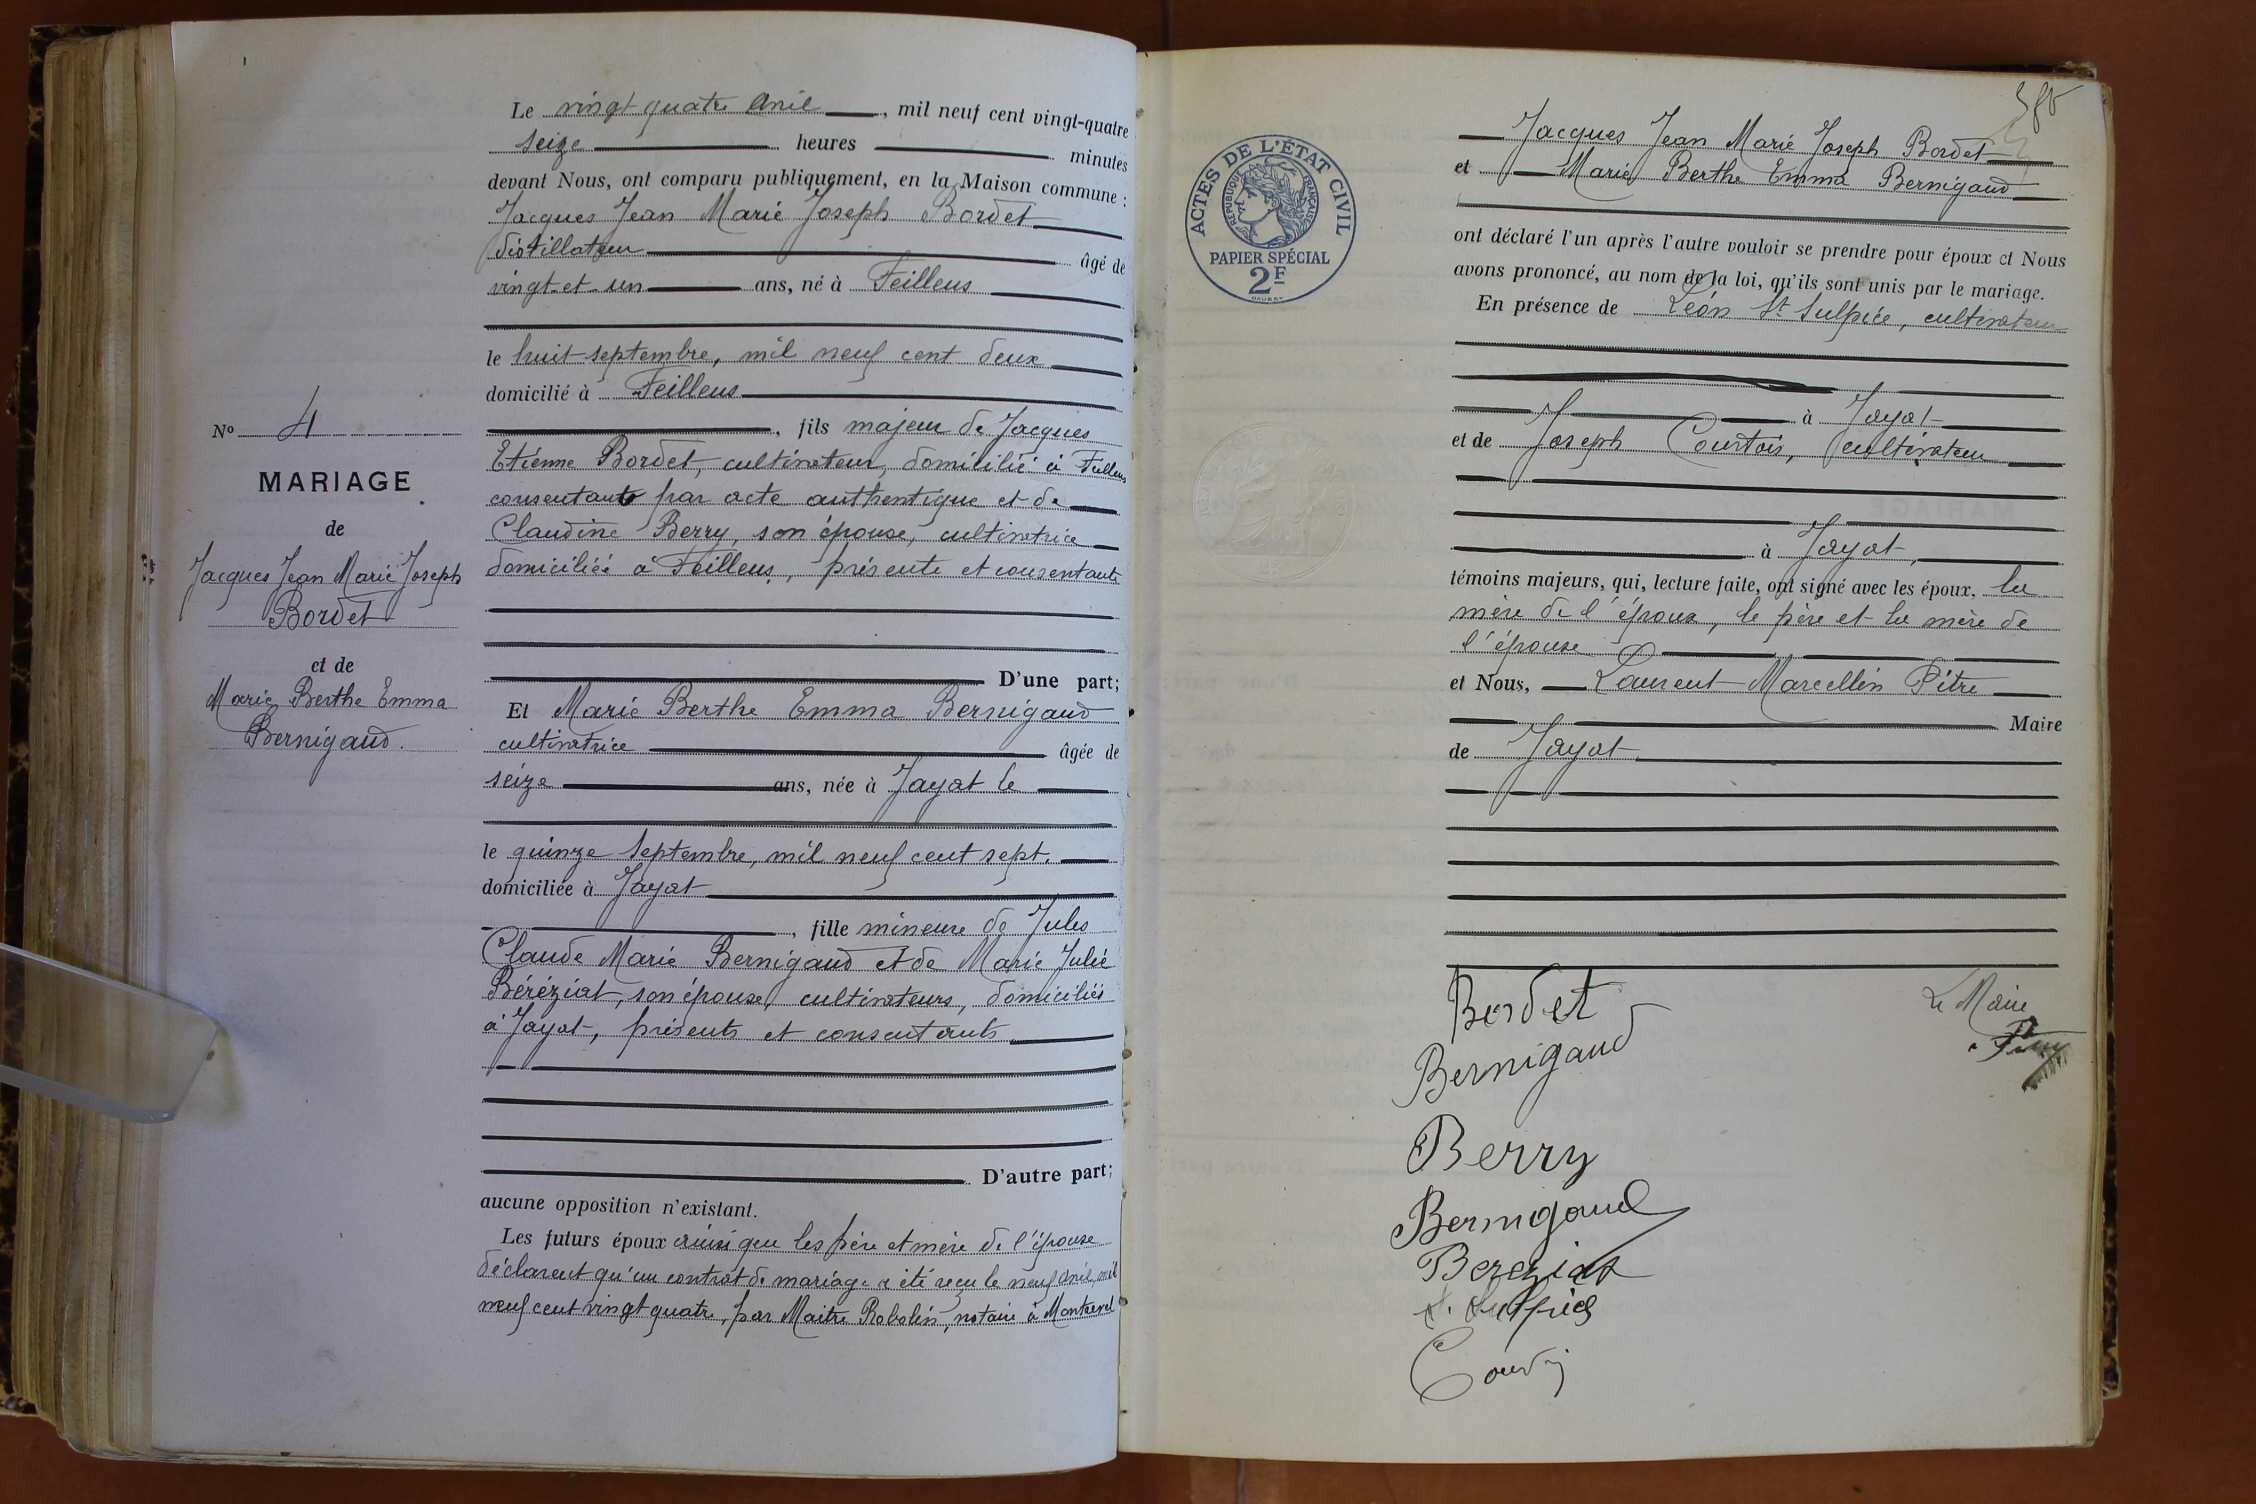 Le vingt quatre avril, mil neuf cent vingt-quatre
seize heures minutes
devant Nous, ont comparu publiquement, en la Maison commune :
Jacques Jean Marie Joseph Bordet
distillateur âgé de
vingt-et-un ans, né à Feillens
le huit septembre, mil neuf cent deux
domicilié à Feillens
, fils majeur de Jacques
Etienne Bordet, cultivateur, domicilié à Feillens
consentant par acte authentique et de
Claudine Berry, son épouse, cultivatrice
domiciliée à Feillens, présente et consentante
D'une part;
Et Marie Berthe Emma Bernigaud
cultivatrice âgée de
seize ans, née à Jayat le
le quinze septembre, mil neuf cent sept,
domiciliée à Jayat
, fille mineure de Jules
Claude Marie Bernigaud et de Marie Julie
Béréziat, son épouse, cultivateurs, domiciliés
à Jayat, présents et consentants
D'autre part;
aucune opposition n'existant.
Les futurs époux ainsi que les père et mère de l'épouse
déclarent qu'un contrat de mariage a été reçu le neuf avril mil
neuf cent vingt quatre, par Maitre Robelin, notaire à Montrevel
Nº 4
MARIAGE
de
Jacques Jean Marie Joseph
Bordet
et de
Marie Berthe Emma
Bernigaud.
ACTES DE L'ÉTAT CIVIL
RÉPUBLIQUE FRANÇAISE
PAPIER SPÉCIAL
2F
Jacques Jean Marie Joseph Bordet
et Marie Berthe Emma Bernigaud
ont déclaré l'un après l'autre vouloir se prendre pour époux et Nous
avons prononcé, au nom de la loi, qu'ils sont unis par le mariage.
En présence de Léon St Sulpice, cultivateur
à Jayat
et de Joseph Courtois, cultivateur
à Jayat,
témoins majeurs, qui, lecture faite, ont signé avec les époux, la
mère de l'époux, le père et la mère de
l'épouse
et Nous, Laurent Marcellin Pitre
Maire
de Jayat
Bordet
Bernigaud
Berry
Bernigaud
Bereziat
St. Sulpice
Le Maire